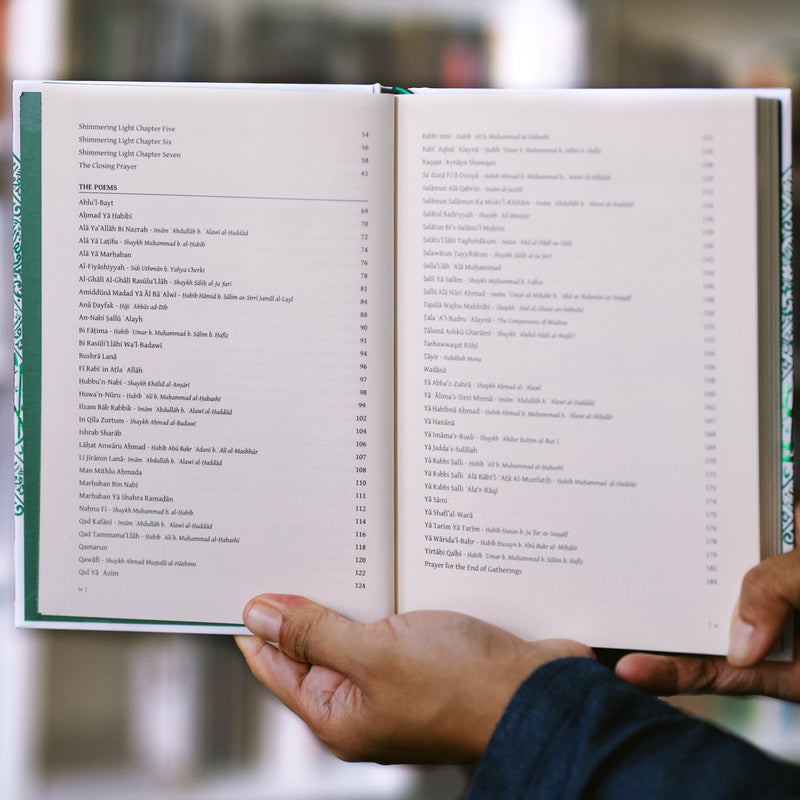 Shimmering Light Chapter Five 54
Shimmering Light Chapter Six 56
Shimmering Light Chapter Seven 58
The Closing Prayer 61
THE POEMS
Ahlu'l-Bayt 69
Aḥmad Yā Ḥabībī 70
Alā Ya'Allāh Bi Naẓrah - Imām ʿAbdullāh b. ʿAlawī al-Ḥaddād 72
Alā Yā Laṭīfu - Shaykh Muḥammad b. al-Ḥabīb 74
Alā Yā Marḥaban 76
Al-Fiyāshiyyah - Sidi Uthmān b. Yaḥya Cherki 78
Al-Ghālī Al-Ghālī Rasūlu'Llāh - Shaykh Ṣāliḥ al-Jaʿfarī 81
Amiddūnā Madad Yā Āl Bā ʿAlwī - Ḥabīb Ḥāmid b. Sālim as-Sirrī Jamāl al-Layl 84
Anā Ḍayfak - Ḥājī ʿAbbās ad-Dīb 88
An-Nabī Ṣallū ʿAlayh 90
Bi Fāṭima - Ḥabīb ʿUmar b. Muḥammad b. Sālim b. Ḥafīẓ 91
Bi Rasūli'Llāhi Wa'l-Badawī 94
Bushrā Lanā 96
Fī Rabīʿin Aṭlaʿ Allāh 97
Ḥubbu'n-Nabī - Shaykh Khālid al-Anṣārī 98
Huwa'n-Nūru - Ḥabīb ʿAlī b. Muḥammad al-Ḥabashī 99
Ilzam Bāb Rabbik - Imām ʿAbdullāh b. ʿAlawī al-Ḥaddād 102
In Qīla Zurtum - Shaykh Aḥmad al-Badawī 104
Ishrab Sharāb 106
Lāḥat Anwāru Aḥmad - Ḥabīb Abū Bakr ʿAdanī b. ʿAlī al-Mashhūr 107
Lī Jīrānin Lanā- Imām ʿAbdullāh b. ʿAlawī al-Ḥaddād 108
Man Mithlu Aḥmada 110
Marḥaban Bin Nabī 111
Marḥaban Yā Shahra Ramaḍān 112
Naḥnu Fī - Shaykh Muḥammad b. al-Ḥabīb 114
Qad Kafānī - Imām ʿAbdullāh b. ʿAlawī al-Ḥaddād 116
Qad Tammama'Llāh - Ḥabīb ʿAlī b. Muḥammad al-Ḥabashī 118
Qamarun 120
Qawāfī - Shaykh Aḥmad Muṣṭafā al-Hāshimī 122
Qul Yā ʿAẓīm 124
Rabbi Innī - Ḥabīb ʿAlī b. Muḥammad al-Ḥabashī
Rabīʿ Aqbal ʿAlaynā - Ḥabīb ʿUmar b. Muḥammad b. Sālim b. Ḥafīẓ
Raqqat ʿAynāya Shawqan
Saʿdunā Fi'd-Dunyā - Ḥabīb Aḥmad b. Muḥammad b. ʿAlawī al-Miḥḍār
Salāmun Alā Qabrin - Imām al-Jazūlī
Salāmun Salāmun Ka Miski'l-Khitām - Imām ʿAbdullāh b. ʿAlawī al-Ḥaddād
Ṣalātul Badriyyah - Shaykh ʿAlī Manṣūr
Ṣalātun Bi's-Salāmi'l Mubīni
Ṣalātu'Llāhi Taghshākum - Imām ʿAbd al-Hādī as-Sūdī
Ṣalawātun Ṭayyibātun - Shaykh Ṣāliḥ al-Jaʿfarī
Ṣalla'Llāh ʿAlā Muḥammad
Ṣallī Yā Salām - Shaykh Muḥammad b. Yallas
Ṣallū Alā Nūri Aḥmad - Imām ʿUmar al-Miḥḍār b. ʿAbd ar-Raḥmān as-Saqqāf
Tajallā Wajhu Maḥbūbī - Shaykh ʿAbd al-Ghanī an-Nābulsī
Ṭala ʿAl-Badru ʿAlaynā - The Companions of Madina
Ṭālamā Ashkū Gharāmī - Shaykh ʿAbdul-Hādī al-Wafā'ī
Tashawwaqat Rūḥī
Ṭāyir - Ḥabābah Mona
Wadānā
Yā Abba'z-Zahrā - Shaykh Aḥmad al-ʿAlawī
Yā ʿĀlima's-Sirri Minnā - Imām ʿAbdullāh b. ʿAlawī al-Ḥaddād
Yā Ḥabībnā Aḥmad - Ḥabīb Aḥmad b. Muḥammad b. ʿAlawī al-Miḥḍār
Yā Hanānā
Yā Imāma'r-Rusli - Shaykh ʿAbdur Raḥīm al-Burʿī 169
Yā Jadda's-Sulālah
Yā Rabbi Ṣalli - Ḥabīb ʿAlī b. Muḥammad al-Ḥabashī 170
Yā Rabbi Ṣalli ʿAlā Bābi'l-ʿAṭā Al-Munfatiḥ - Ḥabīb Muḥammad al-Haddār 171
Yā Rabbi Ṣalli ʿAla'r-Rāqī 172
Yā Sāmiʿ 174
Yā Shafīʿal-Warā 175
Yā Tarīm Yā Tarīm - Ḥabīb Ḥasan b. Jaʿfar as-Saqqāf 176
Yā Wārida'l-Babḥr - Ḥabīb Ḥusayn b. Abū Bakr al-Miḥḍār 178
Yirtāḥi Qalbī - Ḥabīb ʿUmar b. Muḥammad b. Sālim b. Ḥafīẓ 182
Prayer for the End of Gatherings 184